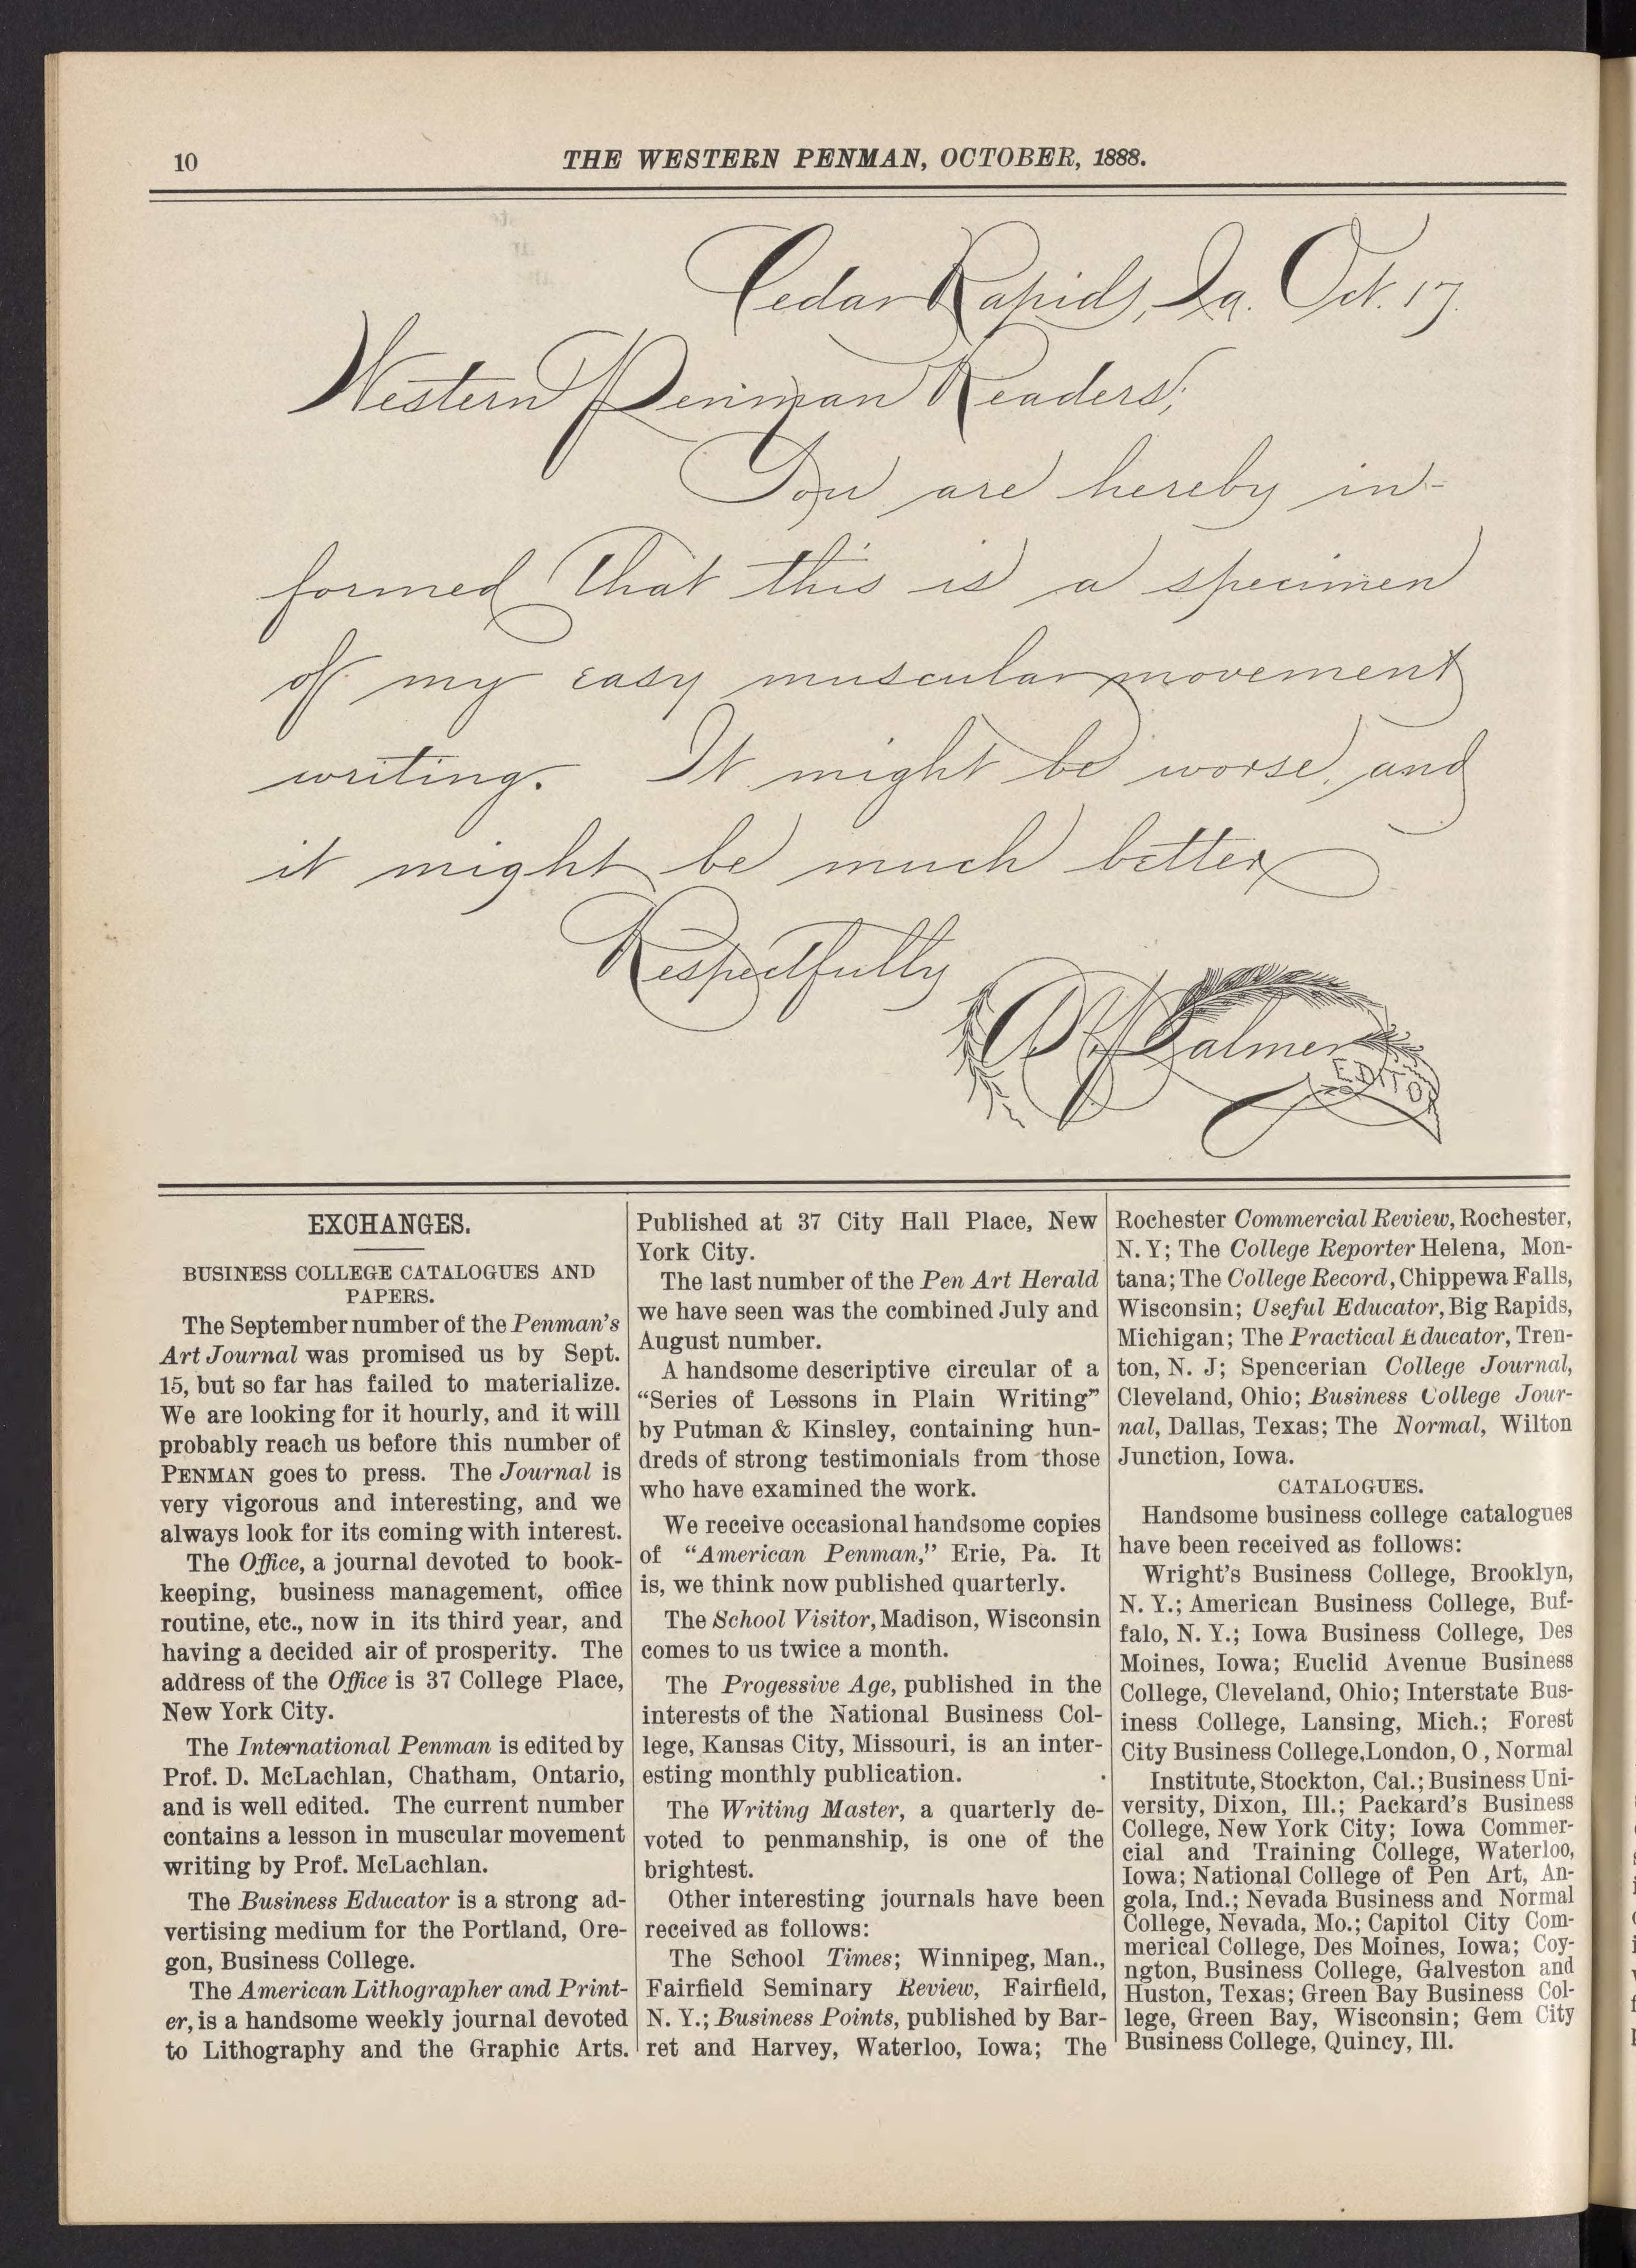 10
THE WESTERN PENMAN, OCTOBER, 1888.
Cedar Rapids, Ia. Oct. 17.
Western Penman Readers;
You are hereby in-
formed that this is a specimen
of my easy muscular movement
writing. It might be worse, and
it might be much better
Respectfully
A N Palmer
EDITOR
EXCHANGES.
BUSINESS COLLEGE CATALOGUES AND
PAPERS.
The September number of the Penman's
Art Journal was promised us by Sept.
15, but so far has failed to materialize.
We are looking for it hourly, and it will
probably reach us before this number of
PENMAN goes to press. The Journal is
very vigorous and interesting, and we
always look for its coming with interest.
The Office, a journal devoted to book-
keeping, business management, office
routine, etc., now in its third year, and
having a decided air of prosperity. The
address of the Office is 37 College Place,
New York City.
The International Penman is edited by
Prof. D. McLachlan, Chatham, Ontario,
and is well edited. The current number
contains a lesson in muscular movement
writing by Prof. McLachlan.
The Business Educator is a strong ad-
vertising medium for the Portland, Ore-
gon, Business College.
The American Lithographer and Print-
er, is a handsome weekly journal devoted
to Lithography and the Graphic Arts.
Published at 37 City Hall Place, New
York City.
The last number of the Pen Art Herald
we have seen was the combined July and
August number.
A handsome descriptive circular of a
"Series of Lessons in Plain Writing"
by Putman & Kinsley, containing hun-
dreds of strong testimonials from those
who have examined the work.
We receive occasional handsome copies
of "American Penman," Erie, Pa. It
is, we think now published quarterly.
The School Visitor, Madison, Wisconsin
comes to us twice a month.
The Progessive Age, published in the
interests of the National Business Col-
lege, Kansas City, Missouri, is an inter-
esting monthly publication.
The Writing Master, a quarterly de-
voted to penmanship, is one of the
brightest.
Other interesting journals have been
received as follows:
The School Times; Winnipeg, Man.,
Fairfield Seminary Review, Fairfield,
N. Y.; Business Points, published by Bar-
ret and Harvey, Waterloo, Iowa; The
Rochester Commercial Review, Rochester,
N. Y; The College Reporter Helena, Mon-
tana; The College Record, Chippewa Falls,
Wisconsin; Useful Educator, Big Rapids,
Michigan; The Practical Educator, Tren-
ton, N. J; Spencerian College Journal,
Cleveland, Ohio; Business College Jour-
nal, Dallas, Texas; The Normal, Wilton
Junction, Iowa.
CATALOGUES.
Handsome business college catalogues
have been received as follows:
Wright's Business College, Brooklyn,
N. Y.; American Business College, Buf-
falo, N. Y.; Iowa Business College, Des
Moines, Iowa; Euclid Avenue Business
College, Cleveland, Ohio; Interstate Bus-
iness College, Lansing, Mich.; Forest
City Business College,London, O , Normal
Institute, Stockton, Cal.; Business Uni-
versity, Dixon, Ill.; Packard's Business
College, New York City; Iowa Commer-
cial and Training College, Waterloo,
Iowa; National College of Pen Art, An-
gola, Ind.; Nevada Business and Normal
College, Nevada, Mo.; Capitol City Com-
merical College, Des Moines, Iowa; Coy-
ngton, Business College, Galveston and
Huston, Texas; Green Bay Business Col-
lege, Green Bay, Wisconsin; Gem City
Business College, Quincy, Ill.